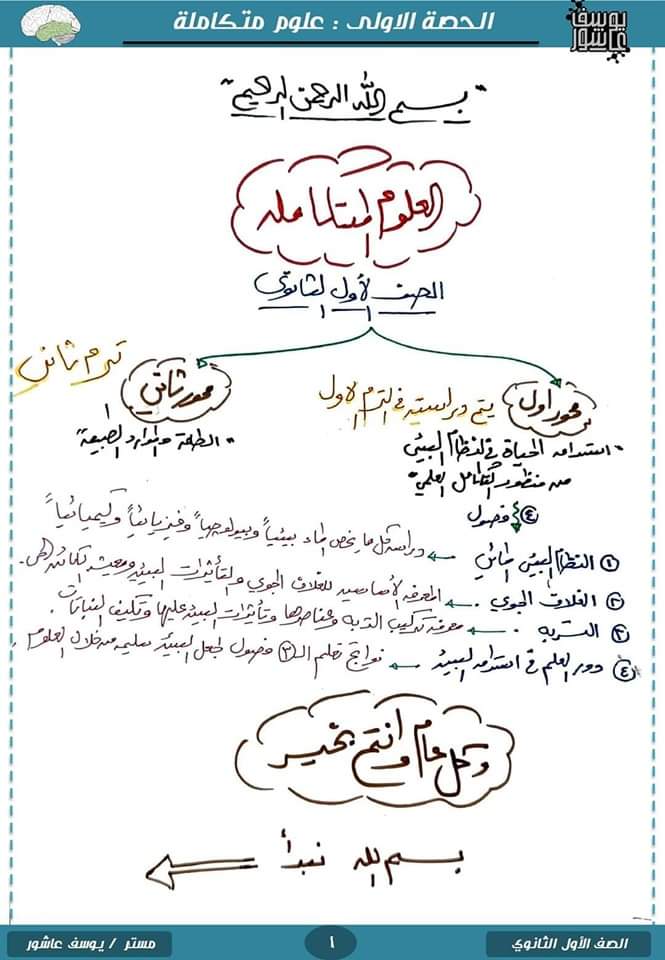 الحصة الاولى : علوم متكاملة
يوسف عاشور
"بسم الله الرحمن الرحيم"
العلوم المتكامله
الصف الأول الثانوي
ترم ثاني
محور ثاني
"الطاقة والموارد الطبيعة"
محور اول
يتم دراسته في الترم الاول
"استدامه الحياة في النظام البيئي
من منظور التكامل العلمي"
④ فصول
① النظام البيئي المائي ← دراسة كل ما يخص الماء بيئياً وبيولوجياً وفيزيائياً وكيميائياً
② الغلاف الجوي ← المعرفه الأساسيه للغلاف الجوي والتأثيرات البيئيه ومعيشه الكائن الحي.
③ التربه ← معرفة تركيب التربه وعناصرها وتأثيرات البيئه عليها وتكيف النباتات
④ دور العلم في استدامه البيئه ← نواتج تعلم الـ ③ فصول لجعل البيئه سليمه من خلال العلوم.
وكل عام وانتم بخير
بسم الله نبدأ
الصف الأول الثانوي
١
مستر / يوسف عاشور